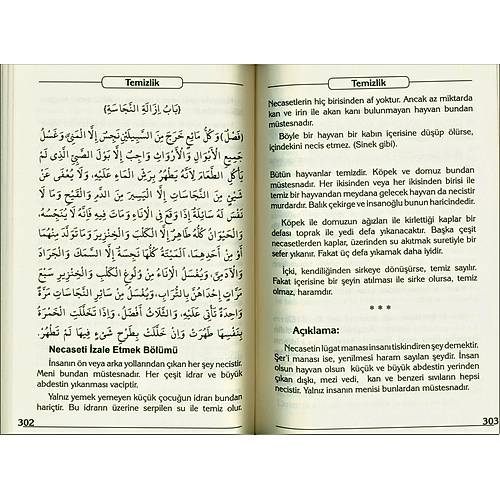 Temizlik
﴿بَابُ اِزَالَةِ النَّجَاسَةِ﴾
﴿فَصْلٌ﴾ وَكُلُّ مَائِعٍ خَرَجَ مِنَ السَّبِيلَيْنِ نَجِسٌ اِلَّا الْمَنِيَّ وَغَسْلُ
جَمِيعِ الْاَبْوَالِ وَالْاَرْوَاثِ وَاجِبٌ اِلَّا بَوْلَ الصَّبِيِّ الَّذِى لَمْ
يَأْكُلِ الطَّعَامَ لِاَنَّهُ يَطْهُرُ بِرَشِّ الْمَاءِ عَلَيْهِ. وَلَا يُعْفَى عَنْ
شَيْئٍ مِنَ النَّجَاسَاتِ اِلَّا الْيَسِيرَ مِنَ الدَّمِ وَالْقَيْحِ وَمَا لَا
نَفْسَ لَهُ سَائِلَةً اِذَا وَقَعَ فِى الْاِنَاءِ وَمَاتَ فِيهِ فَاِنَّهُ لَا يُنَجِّسُهُ.
وَالْحَيَوَانُ كُلُّهُ طَاهِرٌ اِلَّا الْكَلْبَ وَالْخِنْزِيرَ وَمَا تَوَلَّدَ مِنْهُمَا
اَوْ مِنْ اَحَدِهِمَا. الْمَيْتَةُ كُلُّهَا نَجِسَةٌ اِلَّا السَّمَكَ وَالْجَرَادَ
وَالْآدَمِيَّ. وَيُغْسَلُ الْاِنَاءُ مِنْ وُلُوغِ الْكَلْبِ وَالْخِنْزِيرِ سَبْعَ
مَرَّاتٍ اِحْدَاهُنَّ بِالتُّرَابِ. وَيُغْسَلُ مِنْ سَائِرِ النَّجَاسَاتِ مَرَّةً
وَاحِدَةً تَأْتِى عَلَيْهِ. وَالثَّلَاثُ اَفْضَلُ. وَاِذَا تَخَلَّلَتِ الْخَمْرَةُ
بِنَفْسِهَا طَهُرَتْ وَاِنْ خَلَّلَتْ بِطَرْحِ شَىْءٍ فِيهَا لَمْ تَطْهُرْ.
Necaseti İzale Etmek Bölümü
İnsanın ön veya arka yollarından çıkan her şey necistir.
Meni bundan müstesnadır. Her çeşit idrar ve büyük
abdestin yıkanması vaciptir.
Yalnız yemek yemeyen küçük çocuğun idrarı bundan
hariçtir. Bu idrarın üzerine serpilen su ile temiz olur.
302
Temizlik
Necasetlerin hiç birisinden af yoktur. Ancak az miktarda
kan ve irin ile akan kanı bulunmayan hayvan bundan
müstesnadır.
Böyle bir hayvan bir kabın içerisine düşüp ölürse,
içindekini necis etmez. (Sinek gibi).
Bütün hayvanlar temizdir. Köpek ve domuz bundan
müstesnadır. Her ikisinden veya her ikisinden birisi ile
temiz bir hayvandan meydana gelecek hayvan da necistir
murdardır. Balık çekirge ve insanoğlu bunun haricindedir.
Köpek ile domuzun ağızları ile kirlettiği kaplar bir
defası toprak ile yedi defa yıkanacaktır. Başka çeşit
necasetlerden kaplar, üzerinden su akıtmak suretiyle bir
sefer yıkanır. Fakat üç defa yıkamak daha iyidir.
İçki, kendiliğinden sirkeye dönüşürse, temiz sayılır.
Fakat içerisine bir şeyin atılması ile sirke olursa, temiz
olmaz, haramdır.
* * *
Açıklama:
Necasetin lügat manası insanı tiskindiren şey demektir.
Şer'i manası ise, yenilmesi haram sayılan şeydir. İnsan
olsun hayvan olsun küçük ve büyük abdestin yerinden
çıkan dışkı, mezi vedi, kan ve benzeri sıvıların hepsi
necistir. Yalnız insanın menisi bunlardan müstesnadır.
303